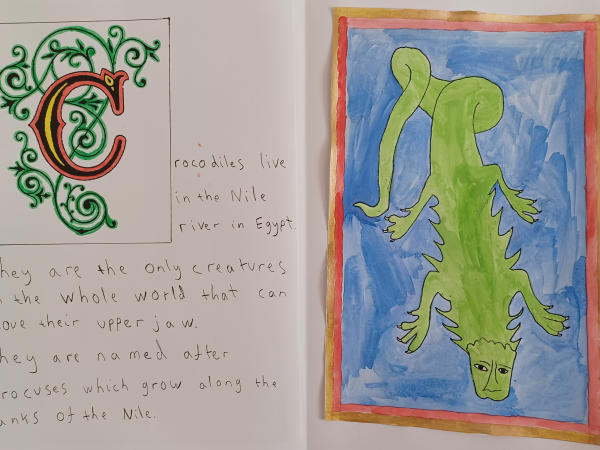 C
rocodiles live
in the Nile
river in Egypt.
hey are the only creatures
the whole world that can
ove their upper jaw.
hey are named after
rocuses which grow along the
anks of the Nile.